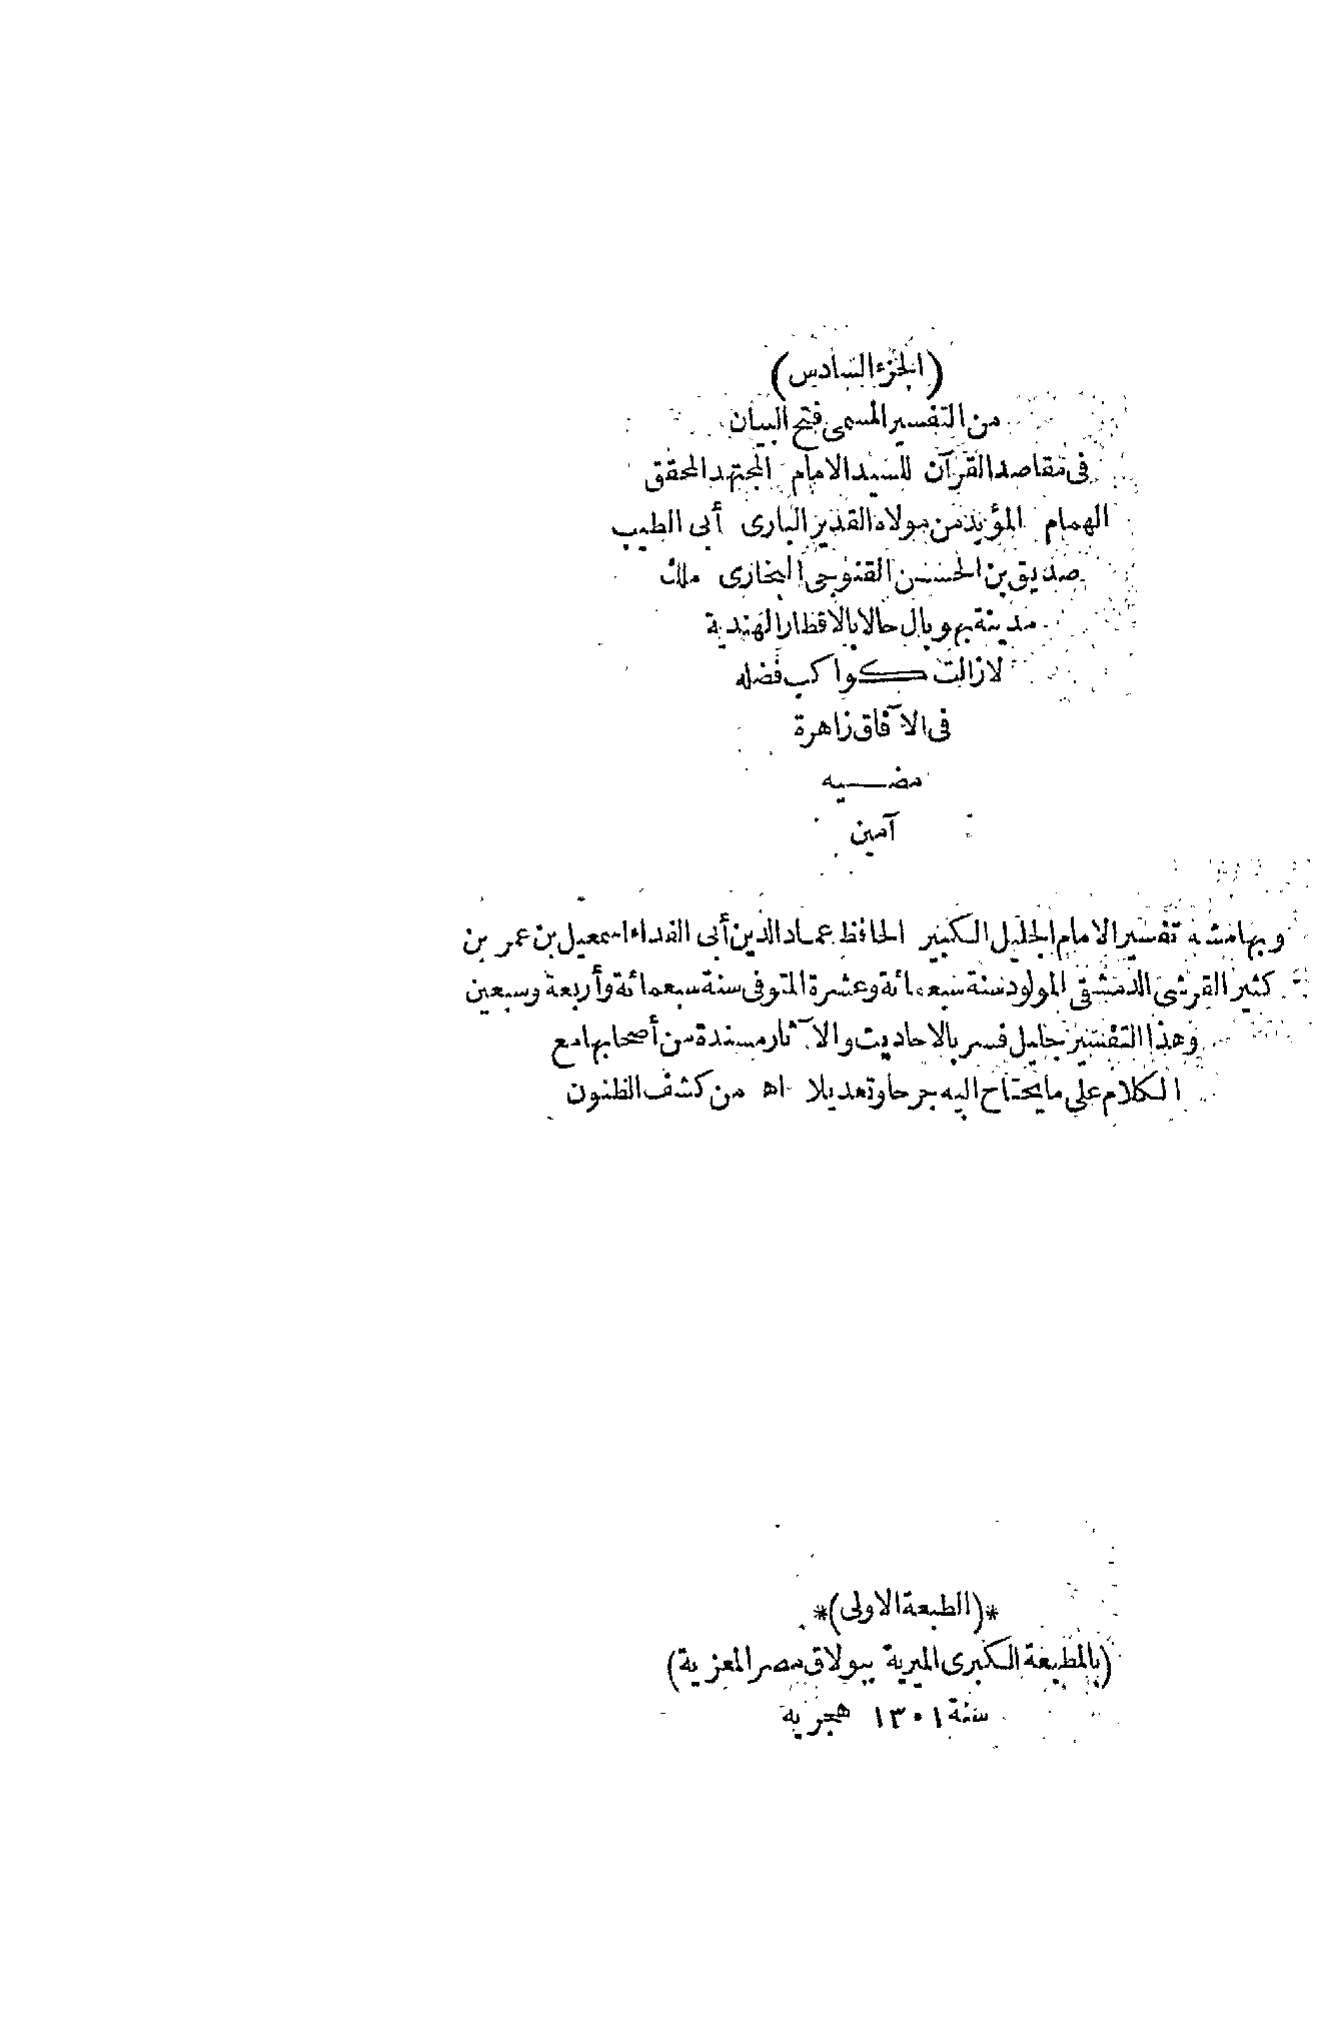 (الجزء السادس)
من التفسير المسمى فتح البيان
فى مقاصد القرآن للسيد الامام المجتهد المحقق
الهمام المؤيد من مولاه القدير البارى أبى الطيب
صديق بن الحسن القنوجى البخارى ملك
مدينة بهوبال حالا بالاقطار الهندية
لازالت كواكب فضله
فى الآفاق زاهرة
مضيه
آمين
وبهامشه تفسير الامام الجليل الكبير الحافظ عماد الدين أبى الفداء اسمعيل بن عمر بن
كثير القرشى الدمشقى المولود سنة سبعمائة وعشرة المتوفى سنة سبعمائة وأربعة وسبعين
وهذا التفسير جليل فسر بالاحاديث والآثار مسندة من أصحابها مع
الكلام على ما يحتاج اليه جرحا وتعديلا اه من كشف الظنون
*(الطبعة الاولى)*
(بالمطبعة الكبرى الميرية ببولاق مصر المعزية)
سنة ١٣٠١ هجريه